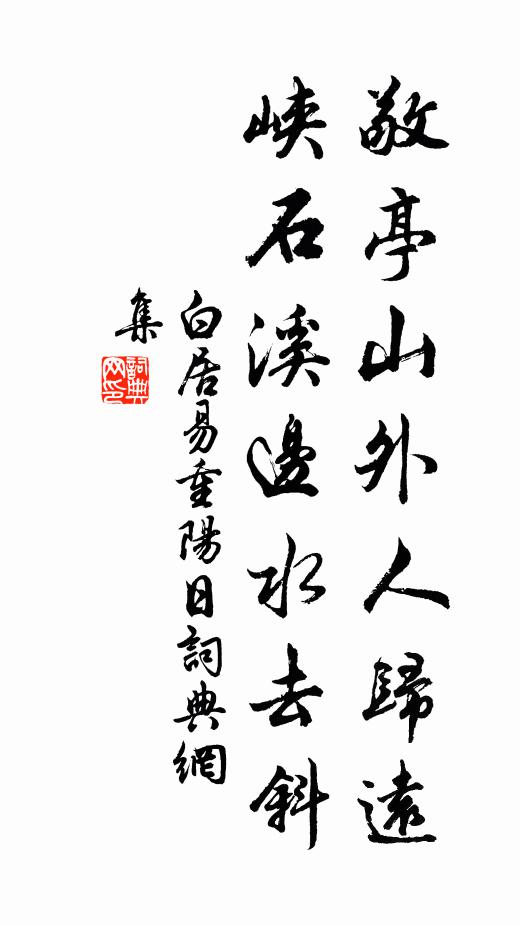 敬亭山外人歸遠
峽石溪邊水去斜
白居易重陽日詞典網
集
詞典
网印